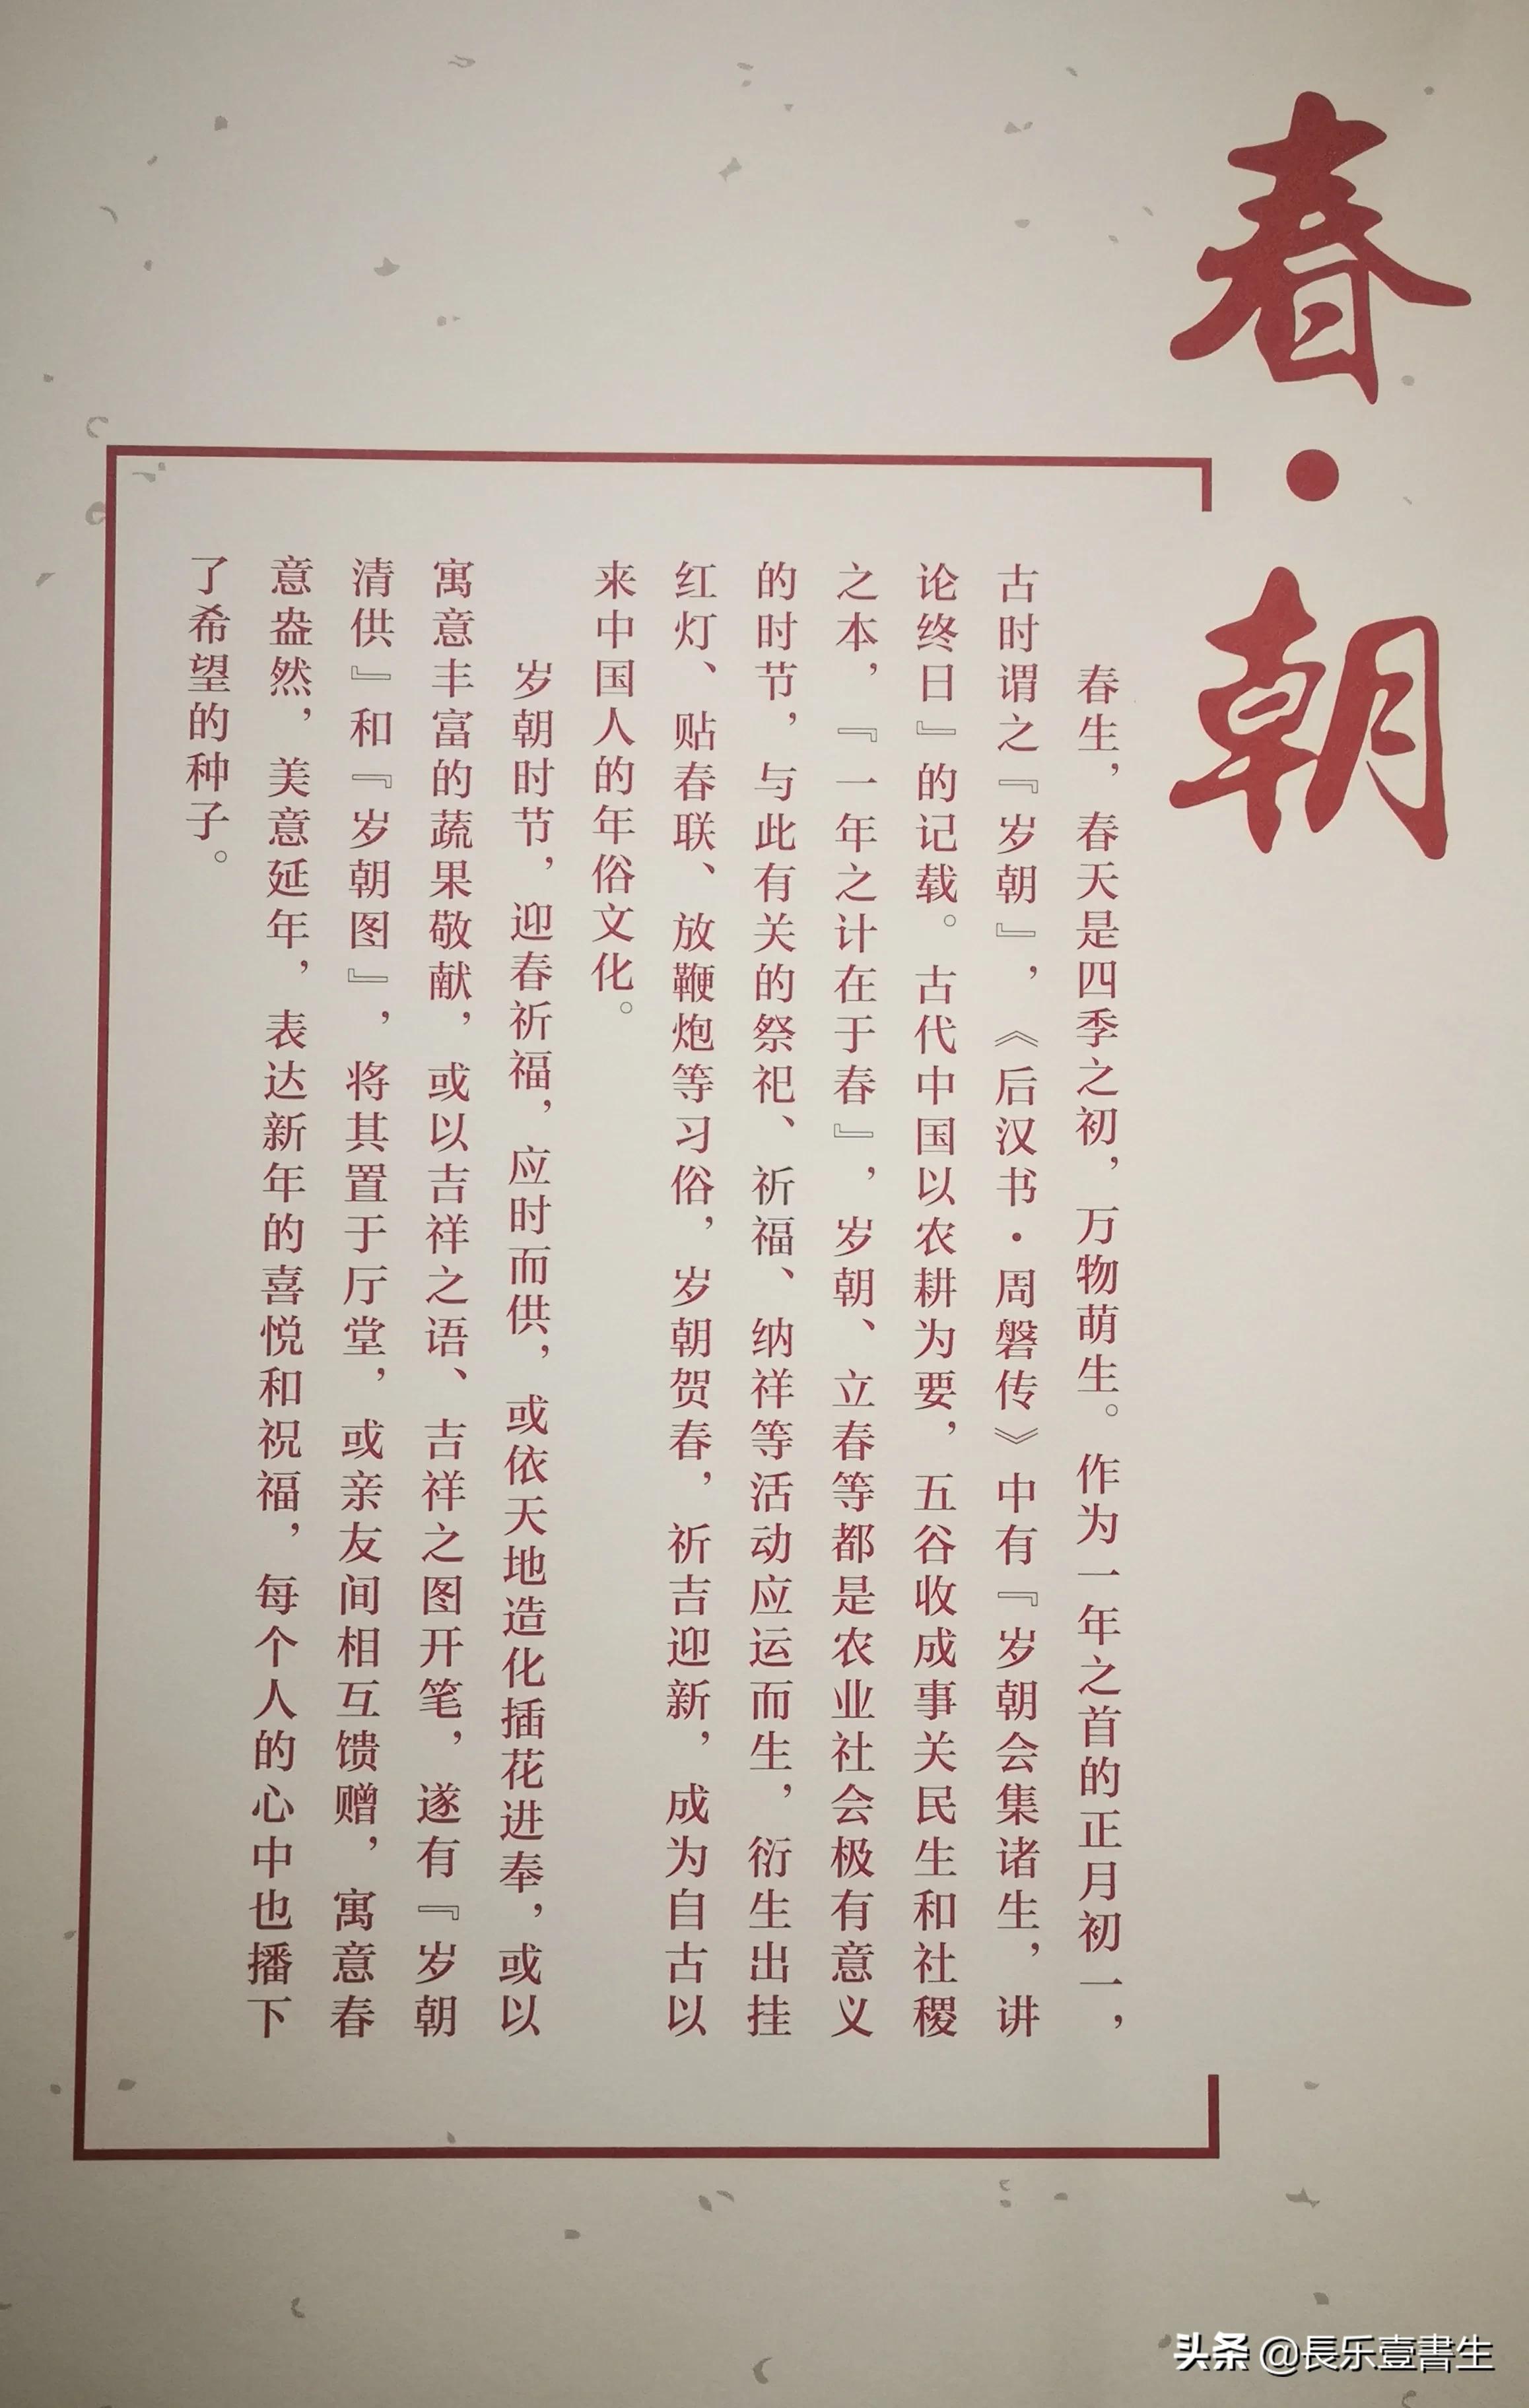 春·朝
春生，春天是四季之初，万物萌生。作为一年之首的正月初一，
古时谓之『岁朝』，《后汉书·周磐传》中有『岁朝会集诸生，讲
论终日』的记载。古代中国以农耕为要，五谷收成事关民生和社稷
之本，『一年之计在于春』，岁朝、立春等都是农业社会极有意义
的时节，与此有关的祭祀、祈福、纳祥等活动应运而生，衍生出挂
红灯、贴春联、放鞭炮等习俗，岁朝贺春，祈吉迎新，成为自古以
来中国人的年俗文化。
岁朝时节，迎春祈福，应时而供，或依天地造化插花进奉，或以
寓意丰富的蔬果敬献，或以吉祥之语、吉祥之图开笔，遂有『岁朝
清供』和『岁朝图』，将其置于厅堂，或亲友间相互馈赠，寓意春
意盎然，美意延年，表达新年的喜悦和祝福，每个人的心中也播下
了希望的种子。
头条 @長乐壹書生